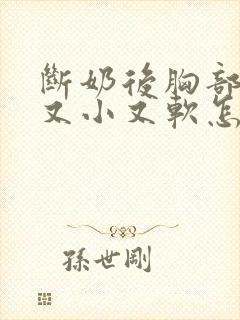 斷奶後胸部
又小又軟怎
孫世剛